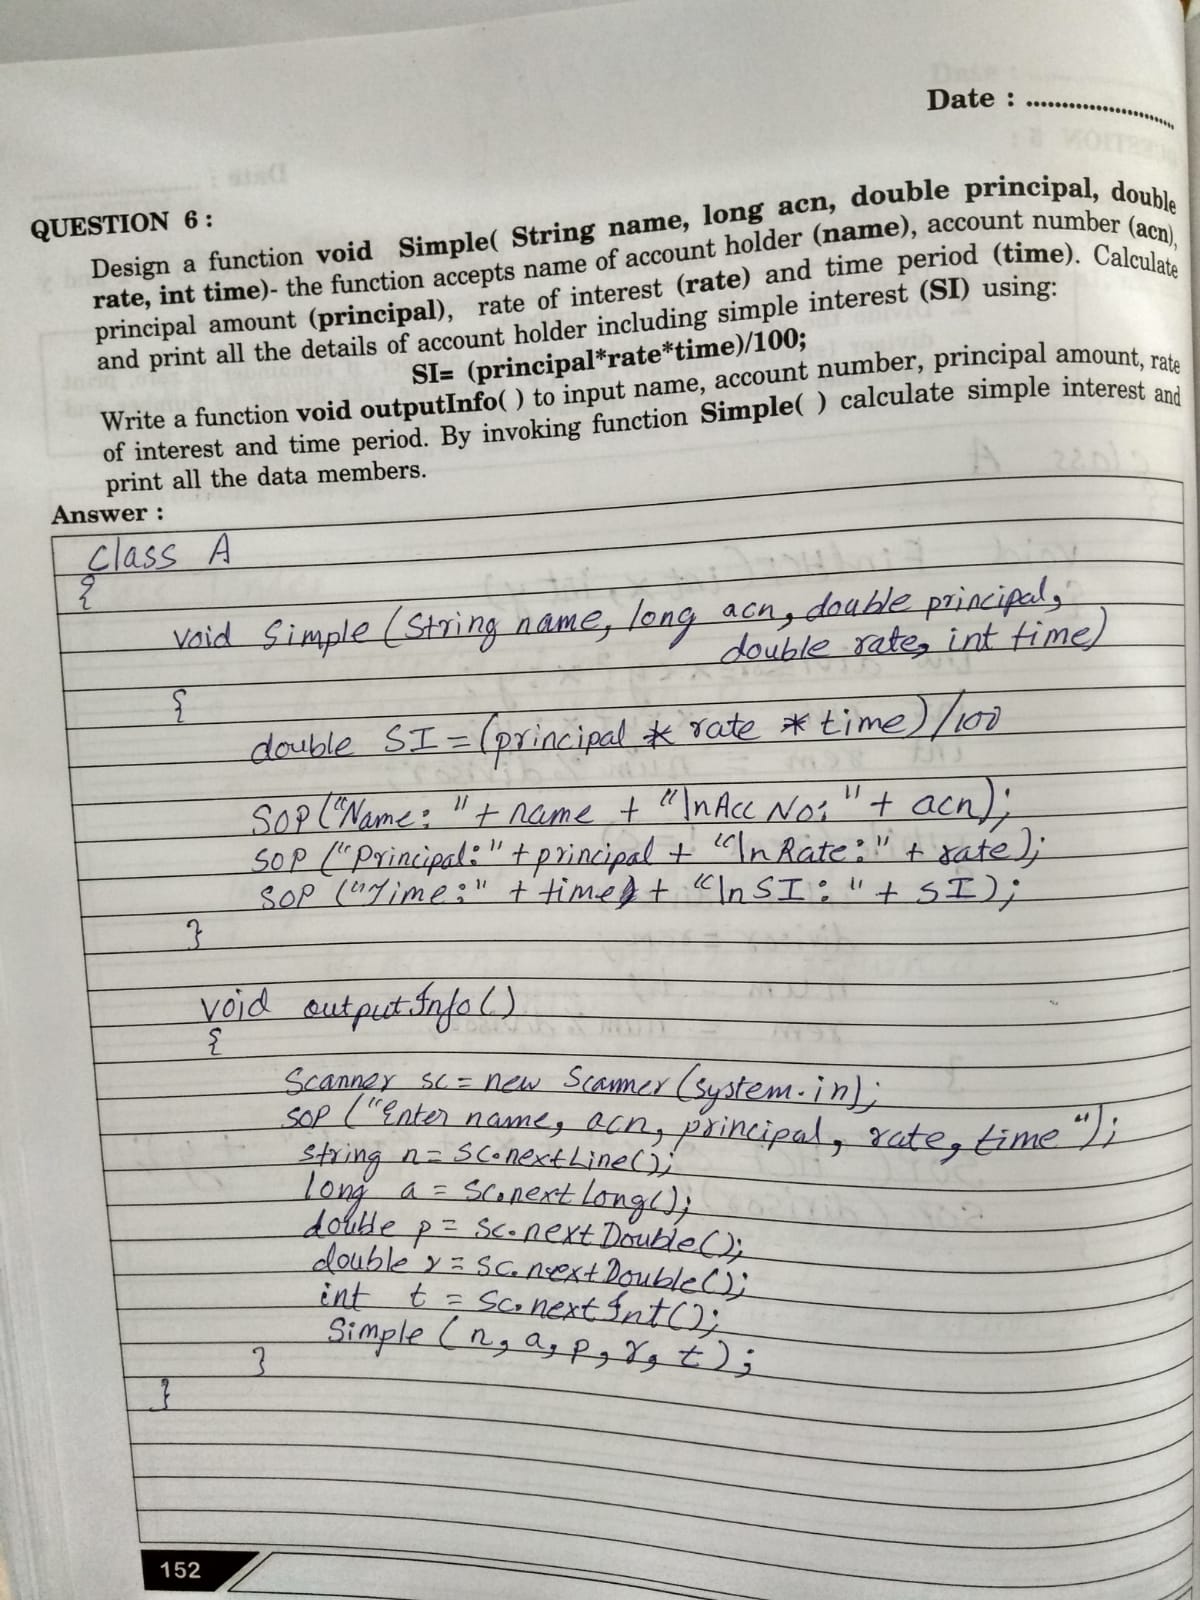 Date : ........................
QUESTION 6 :
Design a function void Simple( String name, long acn, double principal, double
rate, int time)- the function accepts name of account holder (name), account number (acn),
principal amount (principal), rate of interest (rate) and time period (time). Calculate
and print all the details of account holder including simple interest (SI) using:
SI= (principal*rate*time)/100;
Write a function void outputInfo( ) to input name, account number, principal amount, rate
of interest and time period. By invoking function Simple( ) calculate simple interest and
print all the data members.
Answer :
class A
{
void Simple (String name, long acn, double principal,
double rate, int time)
{
double SI = (principal * rate * time)/100
SOP("Name: " + name + "\nAcc No: " + acn);
SOP ("Principal: " + principal + "\n Rate: " + rate);
SOP ("Time: " + time + "\n SI : " + SI);
}
void outputInfo()
{
Scanner sc = new Scanner (system.in);
SOP ("Enter name, acn, principal, rate, time ");
string n = sc.nextLine();
long a = sc.nextLong();
double p = sc.nextDouble();
double r = sc.nextDouble();
int t = sc.nextInt();
Simple (n, a, p, r, t);
}
}
152